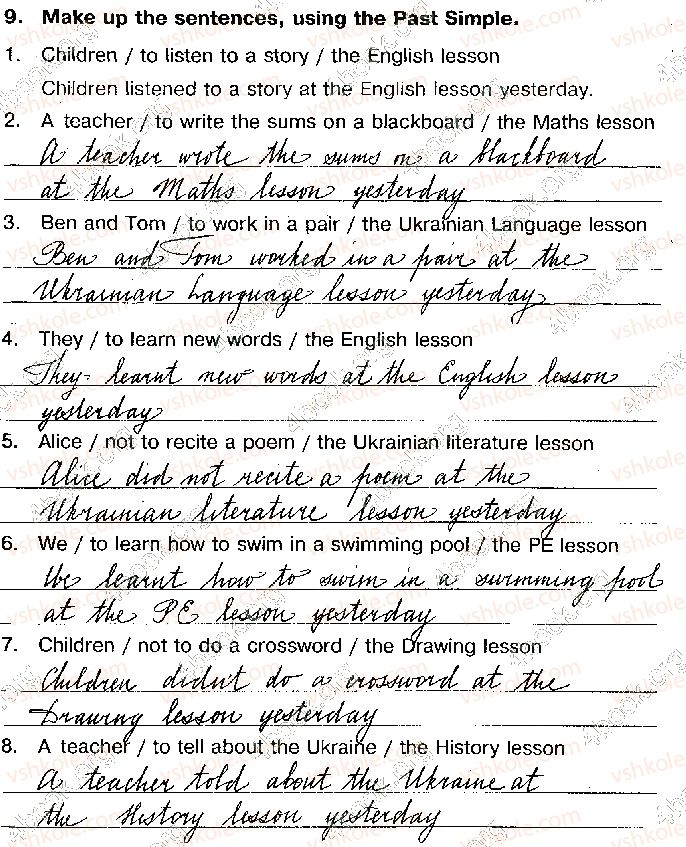 9. Make up the sentences, using the Past Simple.
1. Children / to listen to a story / the English lesson
Children listened to a story at the English lesson yesterday.
2. A teacher / to write the sums on a blackboard / the Maths lesson
A teacher wrote the sums on a blackboard
at the Maths lesson yesterday
3. Ben and Tom / to work in a pair / the Ukrainian Language lesson
Ben and Tom worked in a pair at the
Ukrainian Language lesson yesterday.
4. They / to learn new words / the English lesson
They learnt new words at the English lesson
yesterday
5. Alice / not to recite a poem / the Ukrainian literature lesson
Alice did not recite a poem at the
Ukrainian literature lesson yesterday
6. We / to learn how to swim in a swimming pool / the PE lesson
We learnt how to swim in a swimming pool
at the PE lesson yesterday
7. Children / not to do a crossword / the Drawing lesson
Children didn't do a crossword at the
Drawing lesson yesterday
8. A teacher / to tell about the Ukraine / the History lesson
A teacher told about the Ukraine at
the History lesson yesterday
vshkole.com
4book.org